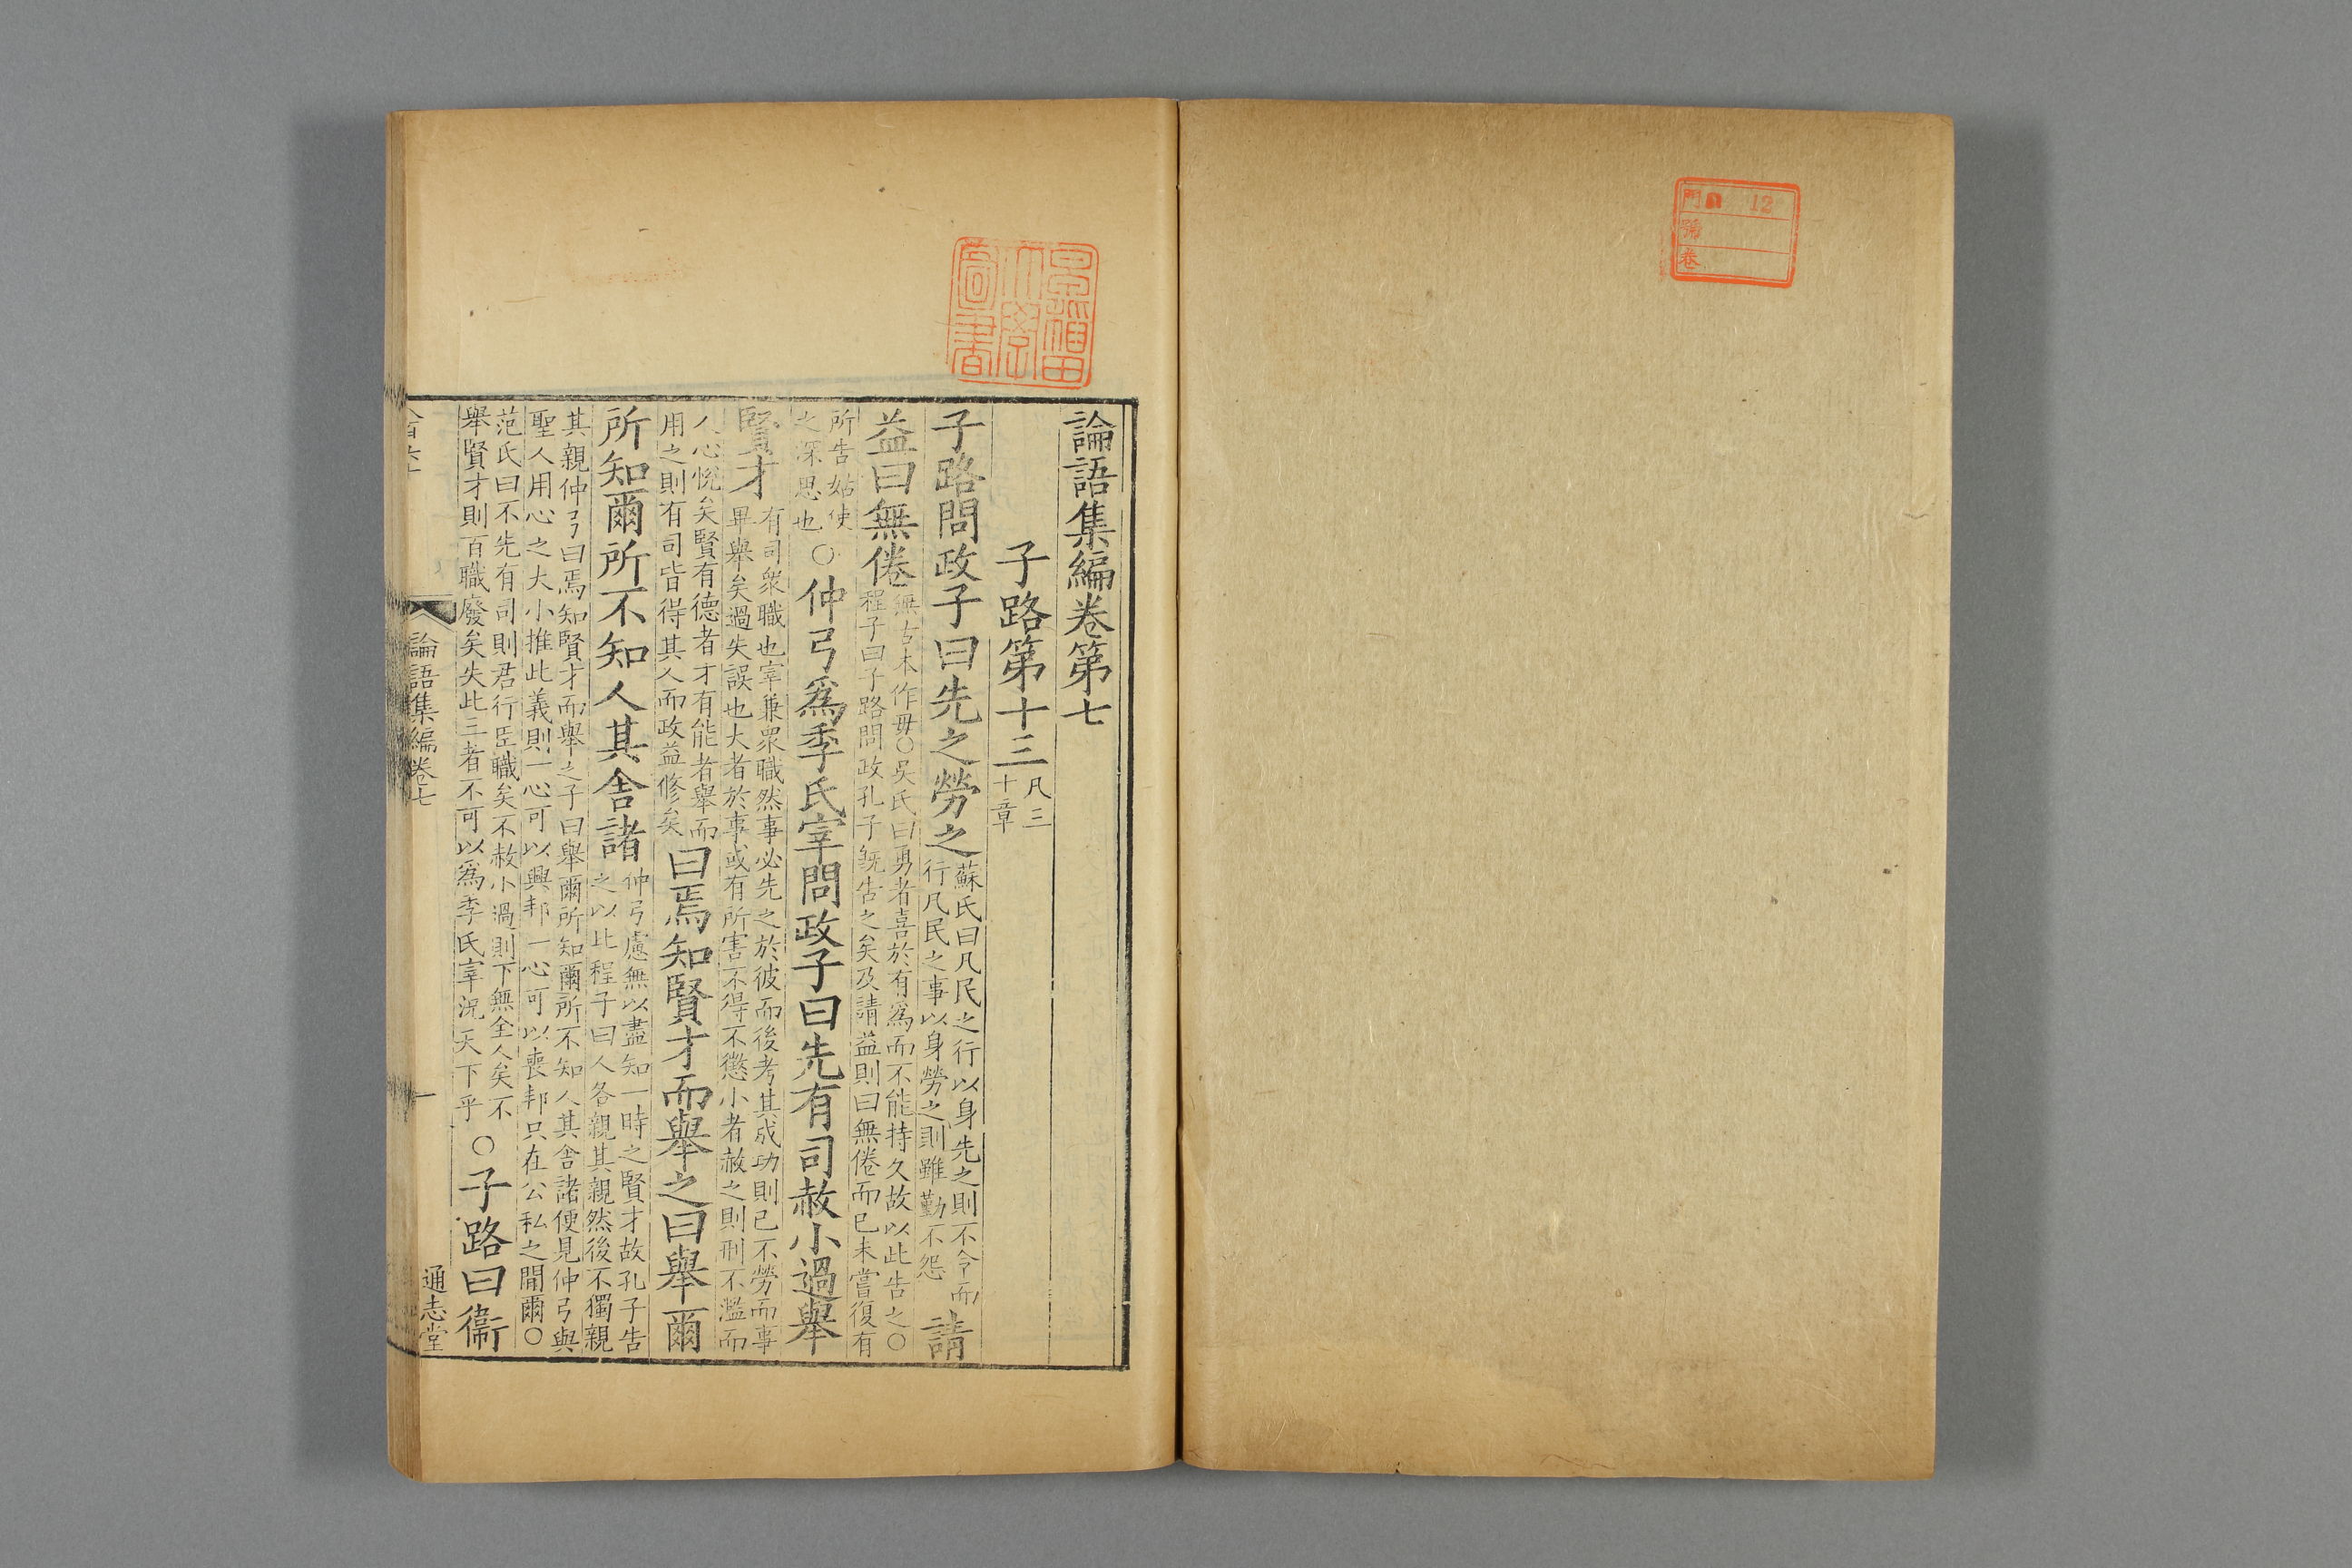 門 12
號
卷
早稲田
大學
圖書
論語集編卷第七
子路第十三 凡三
十章
子路問政子曰先之勞之 蘇氏曰凡民之行以身先之則不令而
行凡民之事以身勞之則雖勤不怨 請
益曰無倦 無古本作毋○吳氏曰勇者喜於有爲而不能持久故以此告之○
程子曰子路問政孔子旣告之矣及請益則曰無倦而已未嘗復有
所告姑使
之深思也 ○仲弓爲季氏宰問政子曰先有司赦小過舉
賢才 有司衆職也宰兼眾職然事必先之於彼而後考其成功則已不勞而事
畢舉矣過失誤也大者於事或有所害不得不懲小者赦之則刑不濫而
人心悅矣賢有德者才有能者舉而
用之則有司皆得其人而政益修矣 曰焉知賢才而舉之曰舉爾
所知爾所不知人其舍諸 仲弓慮無以盡知一時之賢才故孔子告
之以此程子曰人各親其親然後不獨親
其親仲弓曰焉知賢才而舉之子曰舉爾所知爾所不知人其舍諸便見仲弓與
聖人用心之大小推此義則一心可以興邦一心可以喪邦只在公私之閒爾○
范氏曰不先有司則君行臣職矣不赦小過則下無全人矣不
舉賢才則百職廢矣失此三者不可以爲季氏宰況天下乎 ○子路曰衞
論語集編卷七
一
通志堂